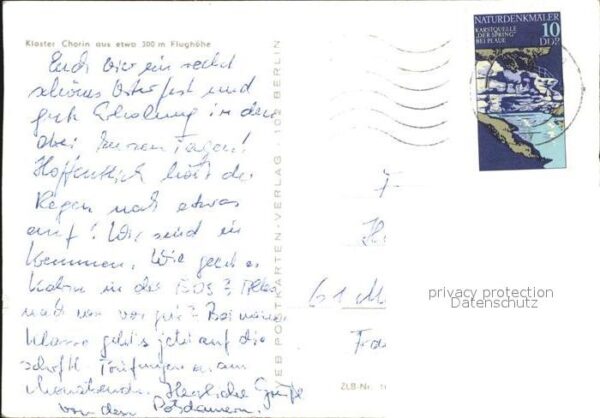 Kloster Chorin aus etwa 300 m Flughöhe
Euch vier ein recht
schönes Osterfest und
gute Erholung in den
drei Tagen!
Hoffentlich hört der
Regen noch etwas
auf! Wir sind im
kommen. Wie geht es
in der EOS?
nach wie vor gut? Bei meiner
Klasse geht's jetzt auf die
schriftl. Prüfungen am
Monatsende. Herzliche Grüße
von den Potsdamern.
VEB POSTKARTEN-VERLAG · 102 BERLIN
NATURDENKMÄLER
KARSTQUELLE 10
"DER SPRING" DDR
BEI PLAUE
F
H
61 M
privacy protection
Datenschutz
Fra
ZLB-Nr.